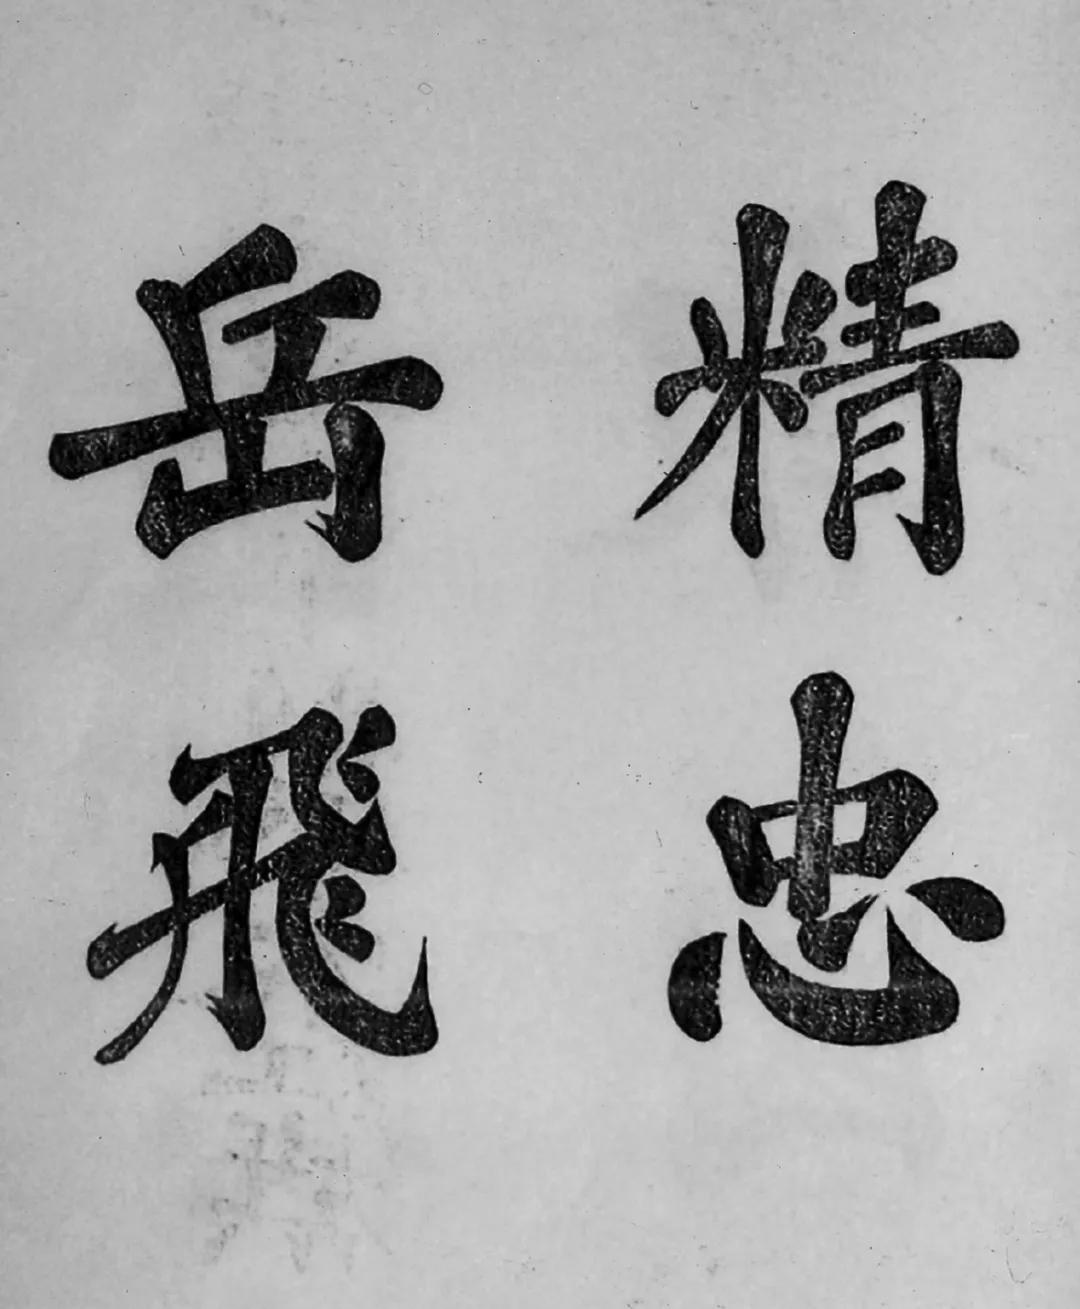 精忠
岳飛